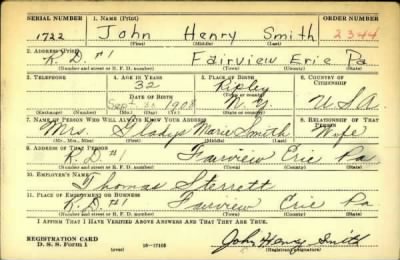 SERIAL NUMBER 1. NAME (Print) ORDER NUMBER
1722 John Henry Smith 2344
(First) (Middle) (Last)
2. ADDRESS (Print)
R.D. #1 Fairview Erie Pa
(Number and street or R. F. D. number) (Town) (County) (State)
3. TELEPHONE 4. AGE IN YEARS 5. PLACE OF BIRTH 6. COUNTRY OF CITIZENSHIP
32 Ripley
DATE OF BIRTH (Town or county)
Sept 1908 N.Y. U.S.A.
(Exchange) (Number) (Mo.) (Day) (Yr.) (State or country)
7. NAME OF PERSON WHO WILL ALWAYS KNOW YOUR ADDRESS 8. RELATIONSHIP OF THAT PERSON
Mrs. Gladys Marie Smith Wife
(Mr., Mrs., Miss) (First) (Middle) (Last)
9. ADDRESS OF THAT PERSON
R.D. #1 Fairview Erie Pa
(Number and street or R. F. D. number) (Town) (County) (State)
10. EMPLOYER'S NAME
Thomas Sterrett
11. PLACE OF EMPLOYMENT OR BUSINESS
R.D. #1 Fairview Erie Pa
(Number and street or R. F. D. number) (Town) (County) (State)
I AFFIRM THAT I HAVE VERIFIED ABOVE ANSWERS AND THAT THEY ARE TRUE.
REGISTRATION CARD
D. S. S. Form 1 (over) 16—17105 John Henry Smith
(Registrant's signature)